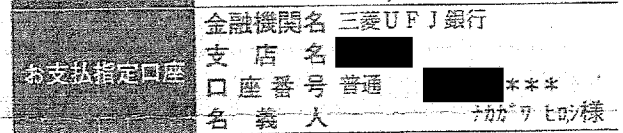 お支払指定口座
金融機関名 三菱UFJ銀行
支店名
口座番号 普通 ***
名義人 ナカガワ ヒロシ様